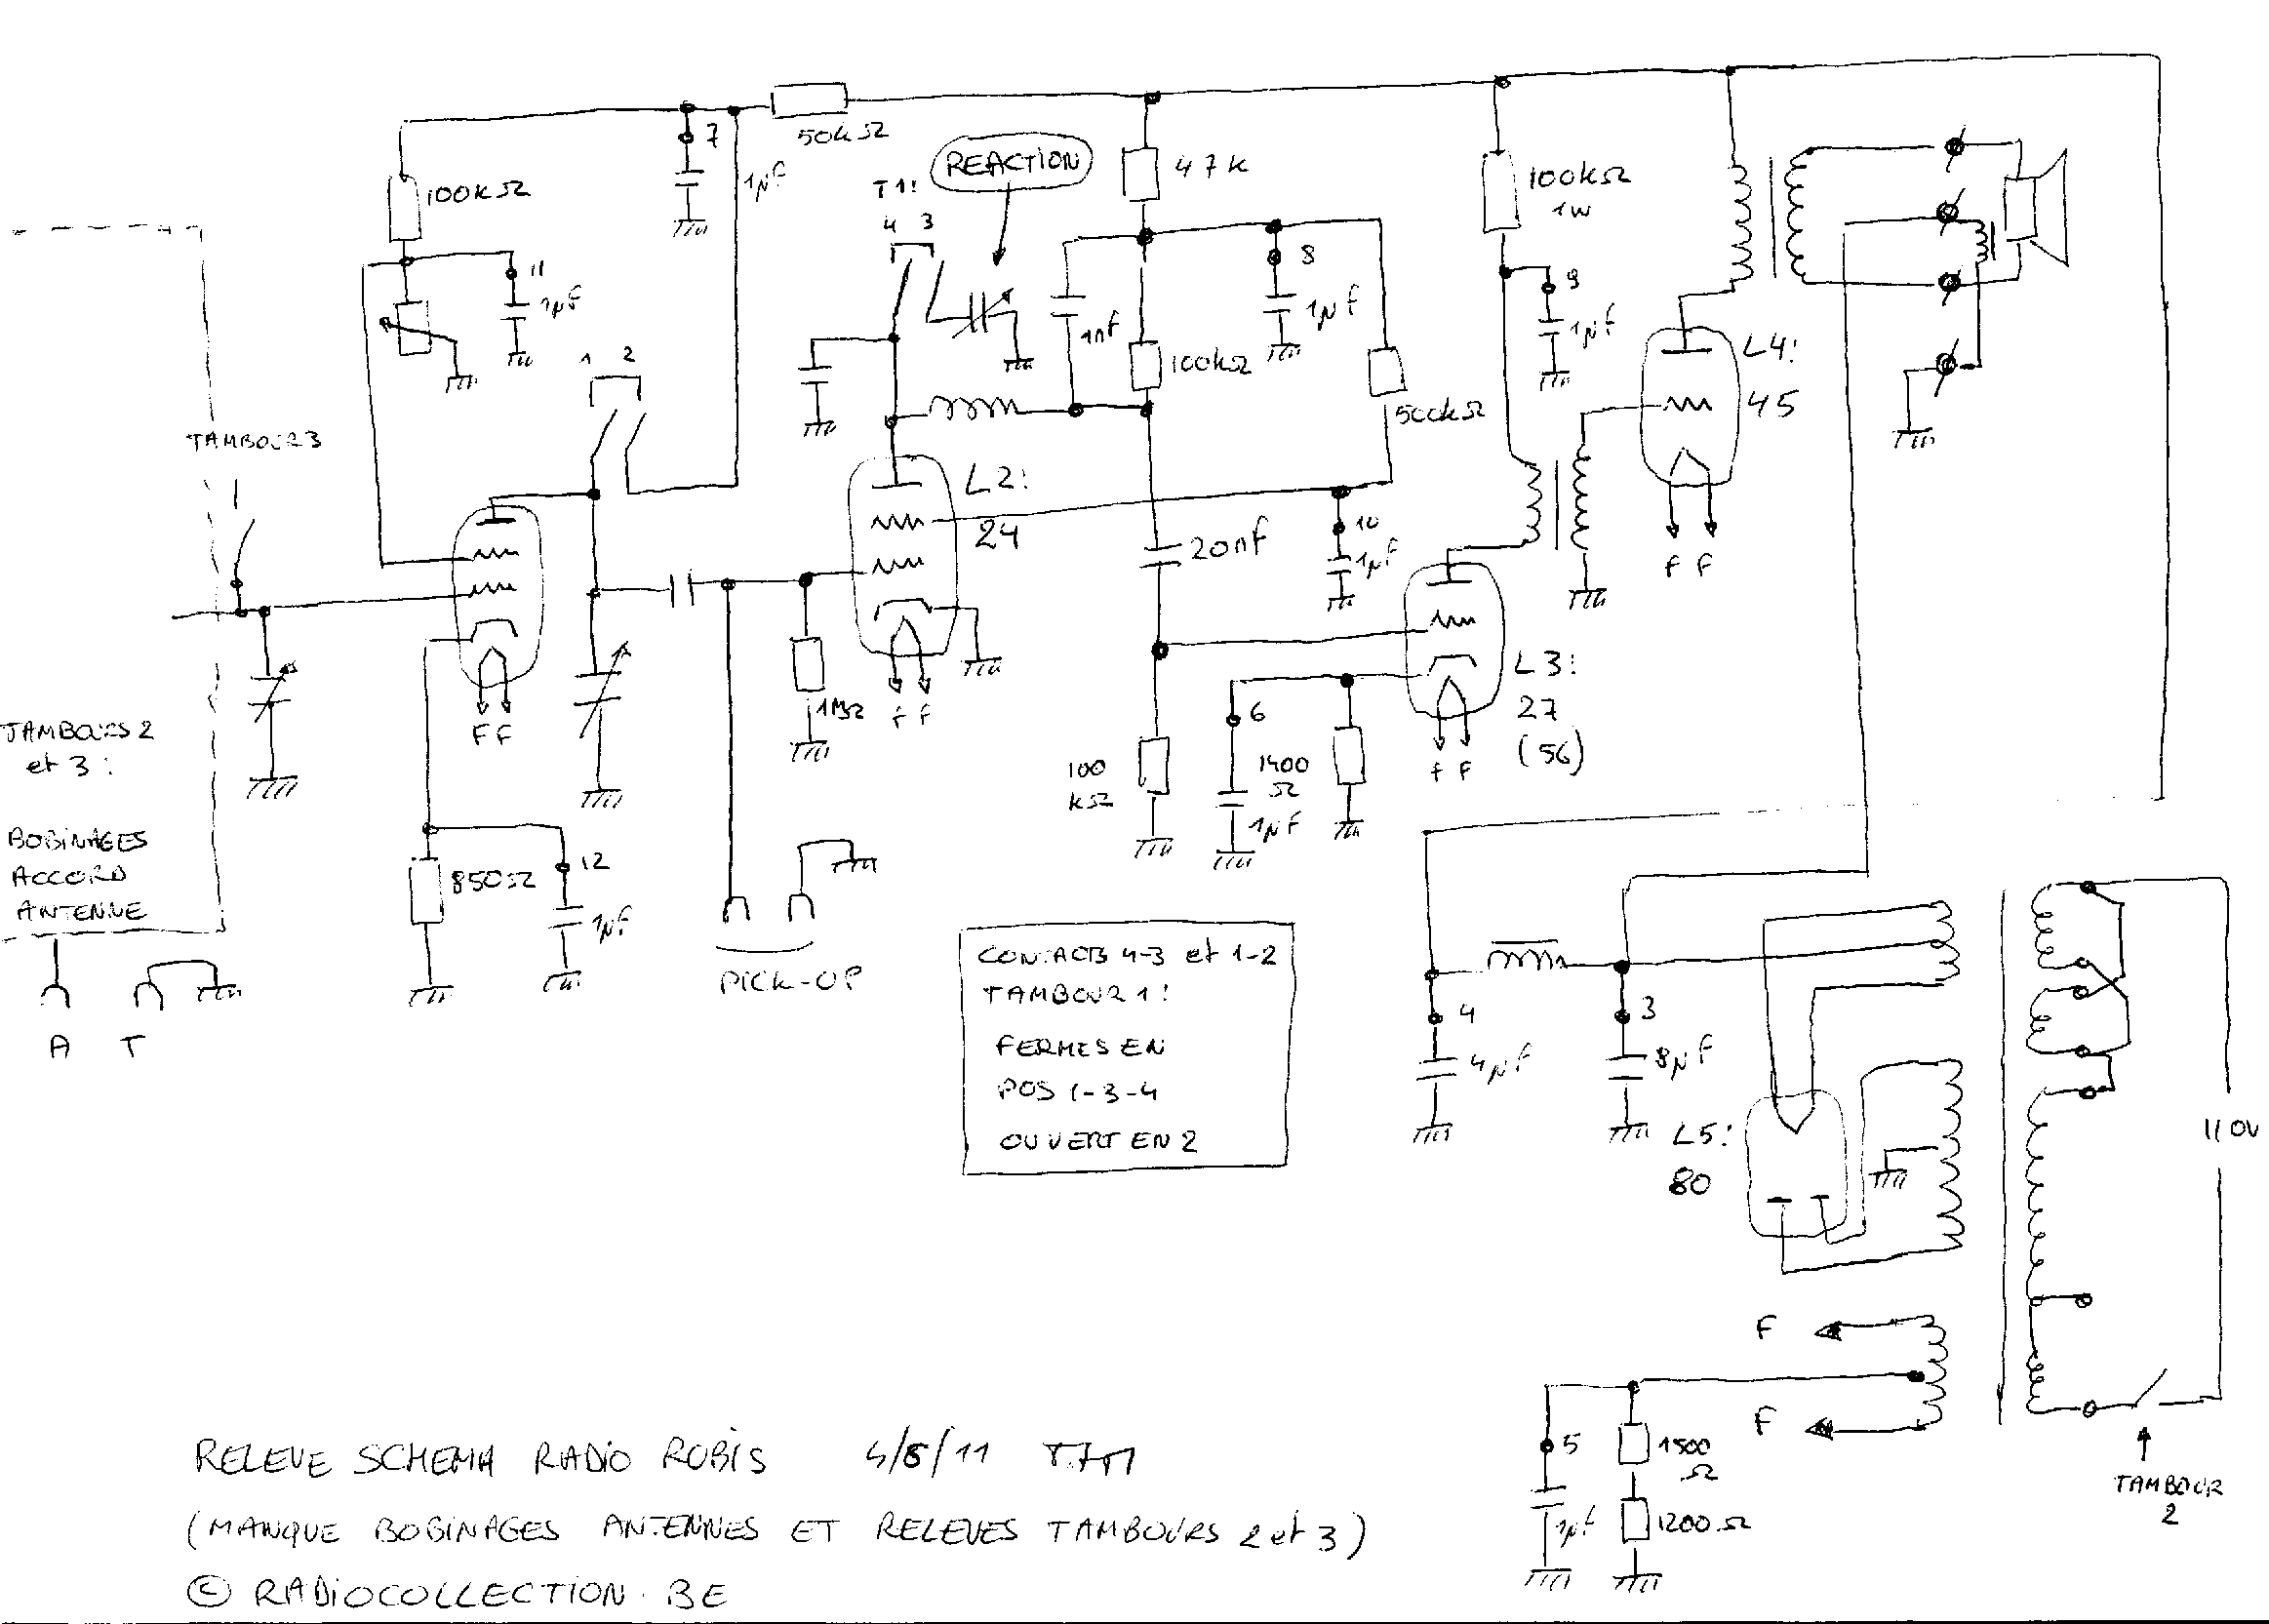 7
50kΩ
1µF
100kΩ
REACTION
T1:
4 3
47K
100kΩ
1W
11
1µF
8
1µF
9
1µF
1nF
100kΩ
500kΩ
L4:
45
1 2
TAMBOUR3
L2:
24
20nF
10
1µF
F F
F F
F F
1MΩ
L3:
27
(56)
F F
6
1400
Ω
1µF
100
kΩ
TAMBOURS 2
et 3:
BOBINAGES
ACCORD
ANTENNE
850Ω
12
1µF
A T
PICK-UP
CONTACTS 4-3 et 1-2
TAMBOUR 1:
FERMES EN
POS 1-3-4
OUVERT EN 2
4
4µF
3
8µF
L5:
80
110V
F
F
5
1µF
1500
Ω
1200Ω
TAMBOUR
2
RELEVE SCHEMA RADIO ROBIS
(MANQUE BOBINAGES ANTENNES ET RELEVES TAMBOURS 2 et 3)
© RADIOCOLLECTION.BE